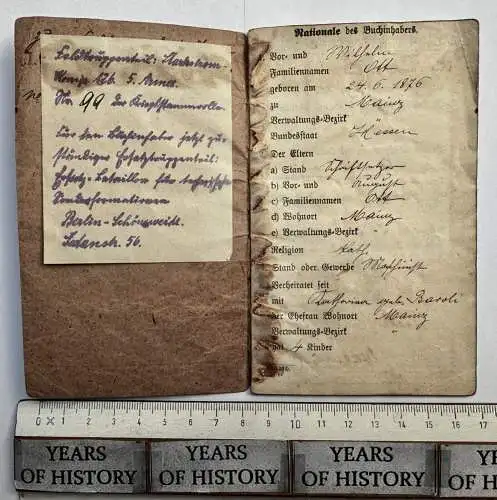 Feldtruppenteil: Starkstrom-
Komp. 176 5. Armee
Nr. 99 der Kriegsstammrolle.
Für den Buchinhaber jetzt zu-
ständiger Ersatztruppenteil:
Ersatz-Bataillon für technische
Sonderformationen
Berlin-Schöneweide.
56.
Nationale des Buchinhabers.
Vor- und Wilhelm
Familiennamen Ott
geboren am 24. 6. 1876
zu Mainz
Verwaltungs-Bezirk "
Bundesstaat Hessen
Der Eltern
a) Stand Schriftsetzer
b) Vor- und August
c) Familiennamen Ott
d) Wohnort Mainz
e) Verwaltungs-Bezirk "
Religion kath.
Stand oder Gewerbe Maschinist
Verheiratet seit
mit Katharina geb. Baroli
der Ehefrau Wohnort Mainz
Verwaltungs-Bezirk "
hat 4 Kinder
0 1 2 3 4 5 6 7 8 9 10 11 12 13 14 15 16 17
YEARS OF HISTORY YEARS OF HISTORY YEARS OF HISTORY